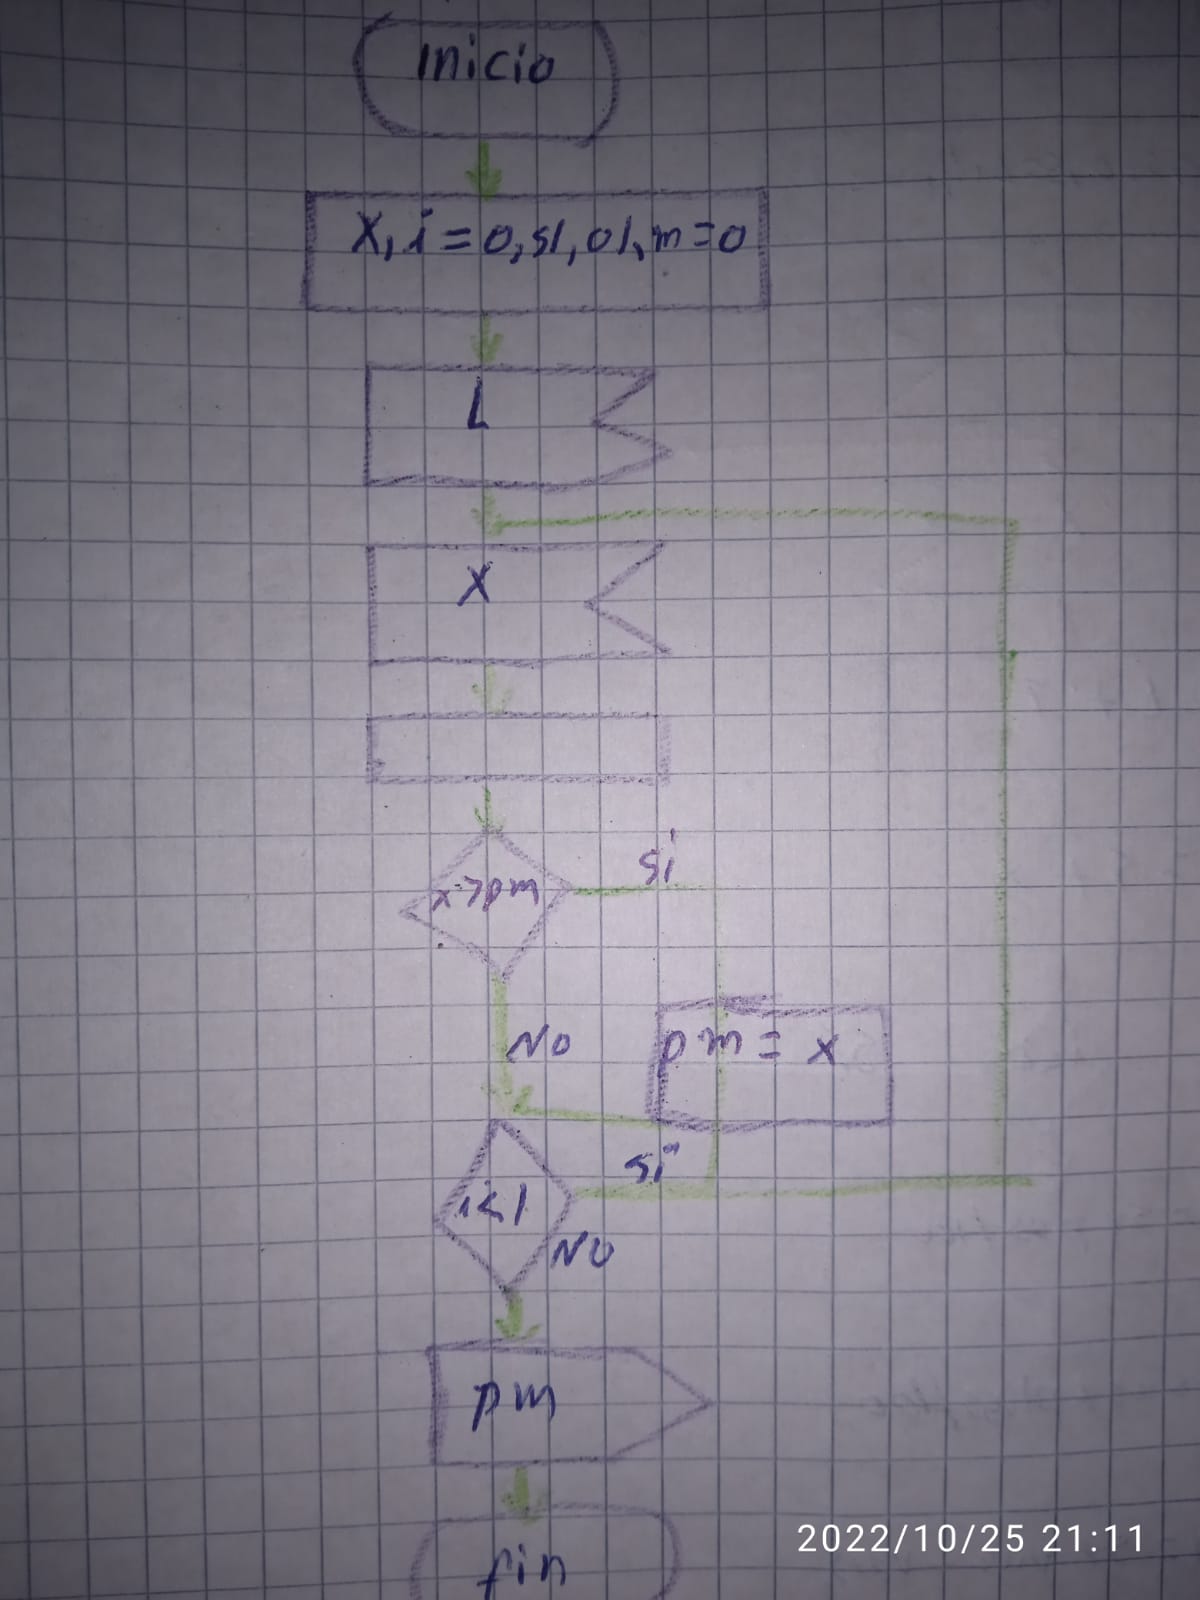 Inicio
X, i = 0, sl, ol, m = 0
L
X
x > pm
si
No
pm = x
si
i < l
No
pm
fin
2022/10/25 21:11